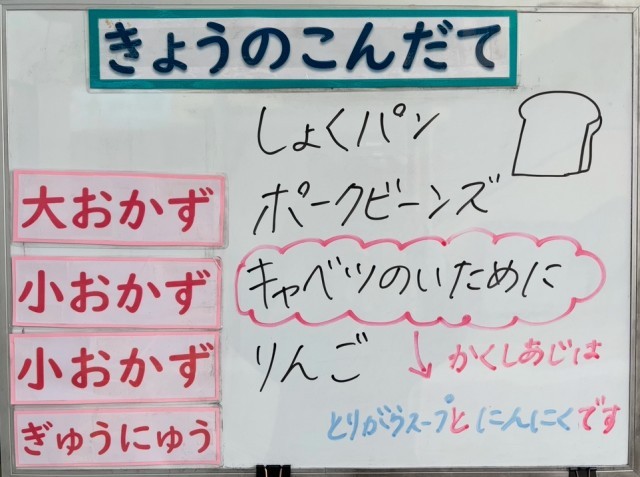 きょうのこんだて
しょくパン
大おかず ポークビーンズ
小おかず キャベツのいために
小おかず りんご ↓ かくしあじは
ぎゅうにゅう とりがらスープとにんにくです